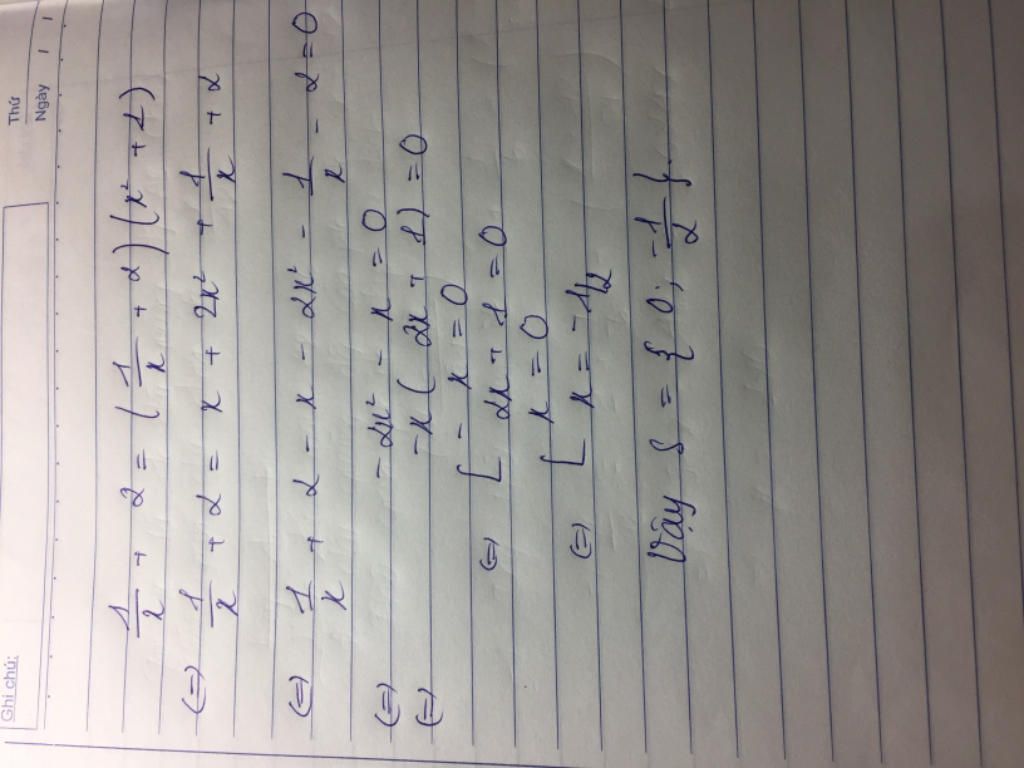 Ghi chú:
Thứ
Ngày
1/x + 2 = (1/x + 2)(x² + 1)
(=) 1/x + 2 = x + 2x² + 1/x + 2
(=) 1/x + 2 - x - 2x² - 1/x - 2 = 0
(=) - 2x² - x = 0
(=) -x(2x + 1) = 0
(=) [ - x = 0
2x + 1 = 0
(=) [ x = 0
x = -1/2
Vậy S = {0; -1/2}.